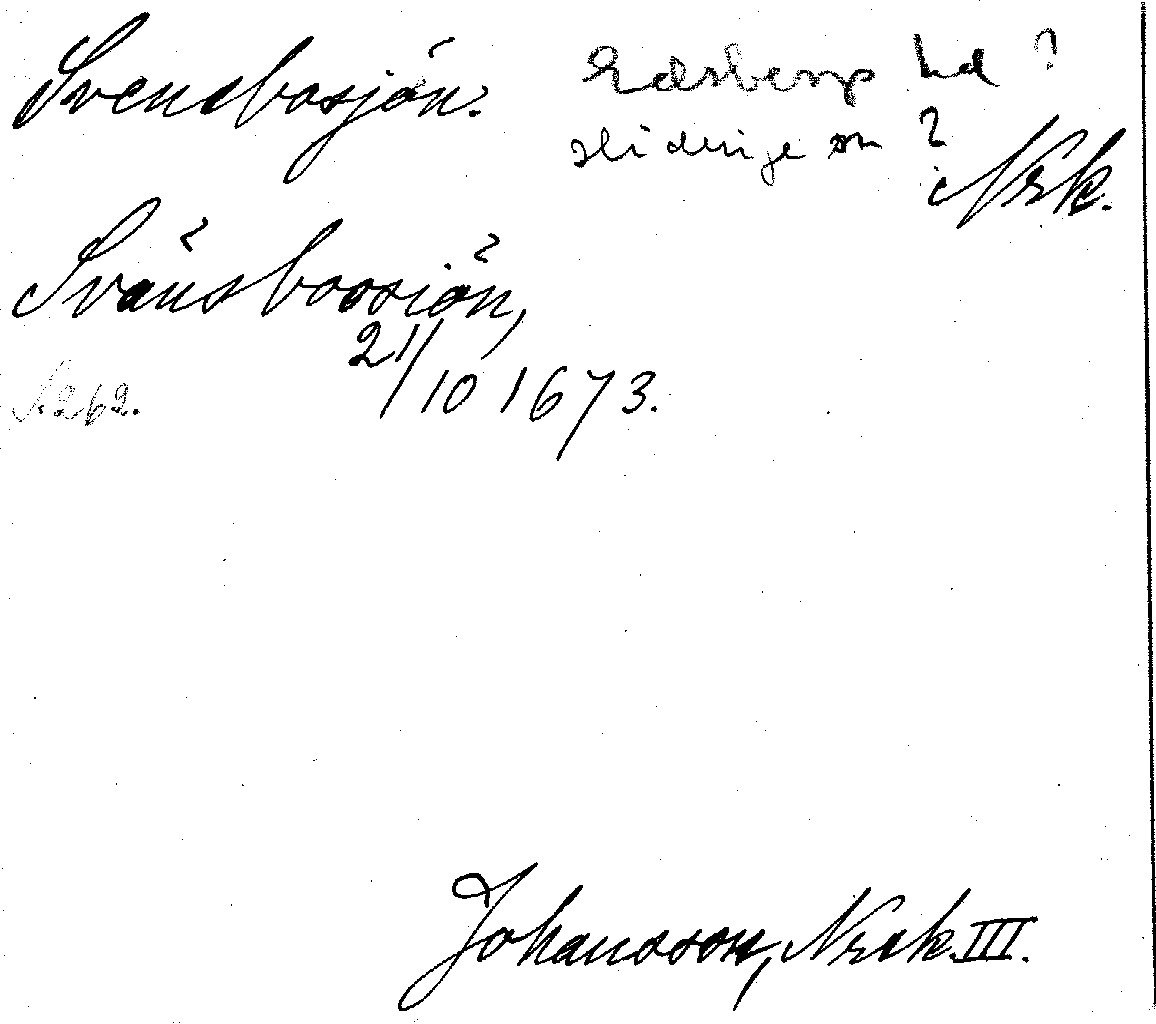 Svensbosjön. Edsberg hd ?
Skideige sn ?
Nrk.
Svänsboosiön,
21/10 1673.
s. 262.
Johansson, Nerik. III.